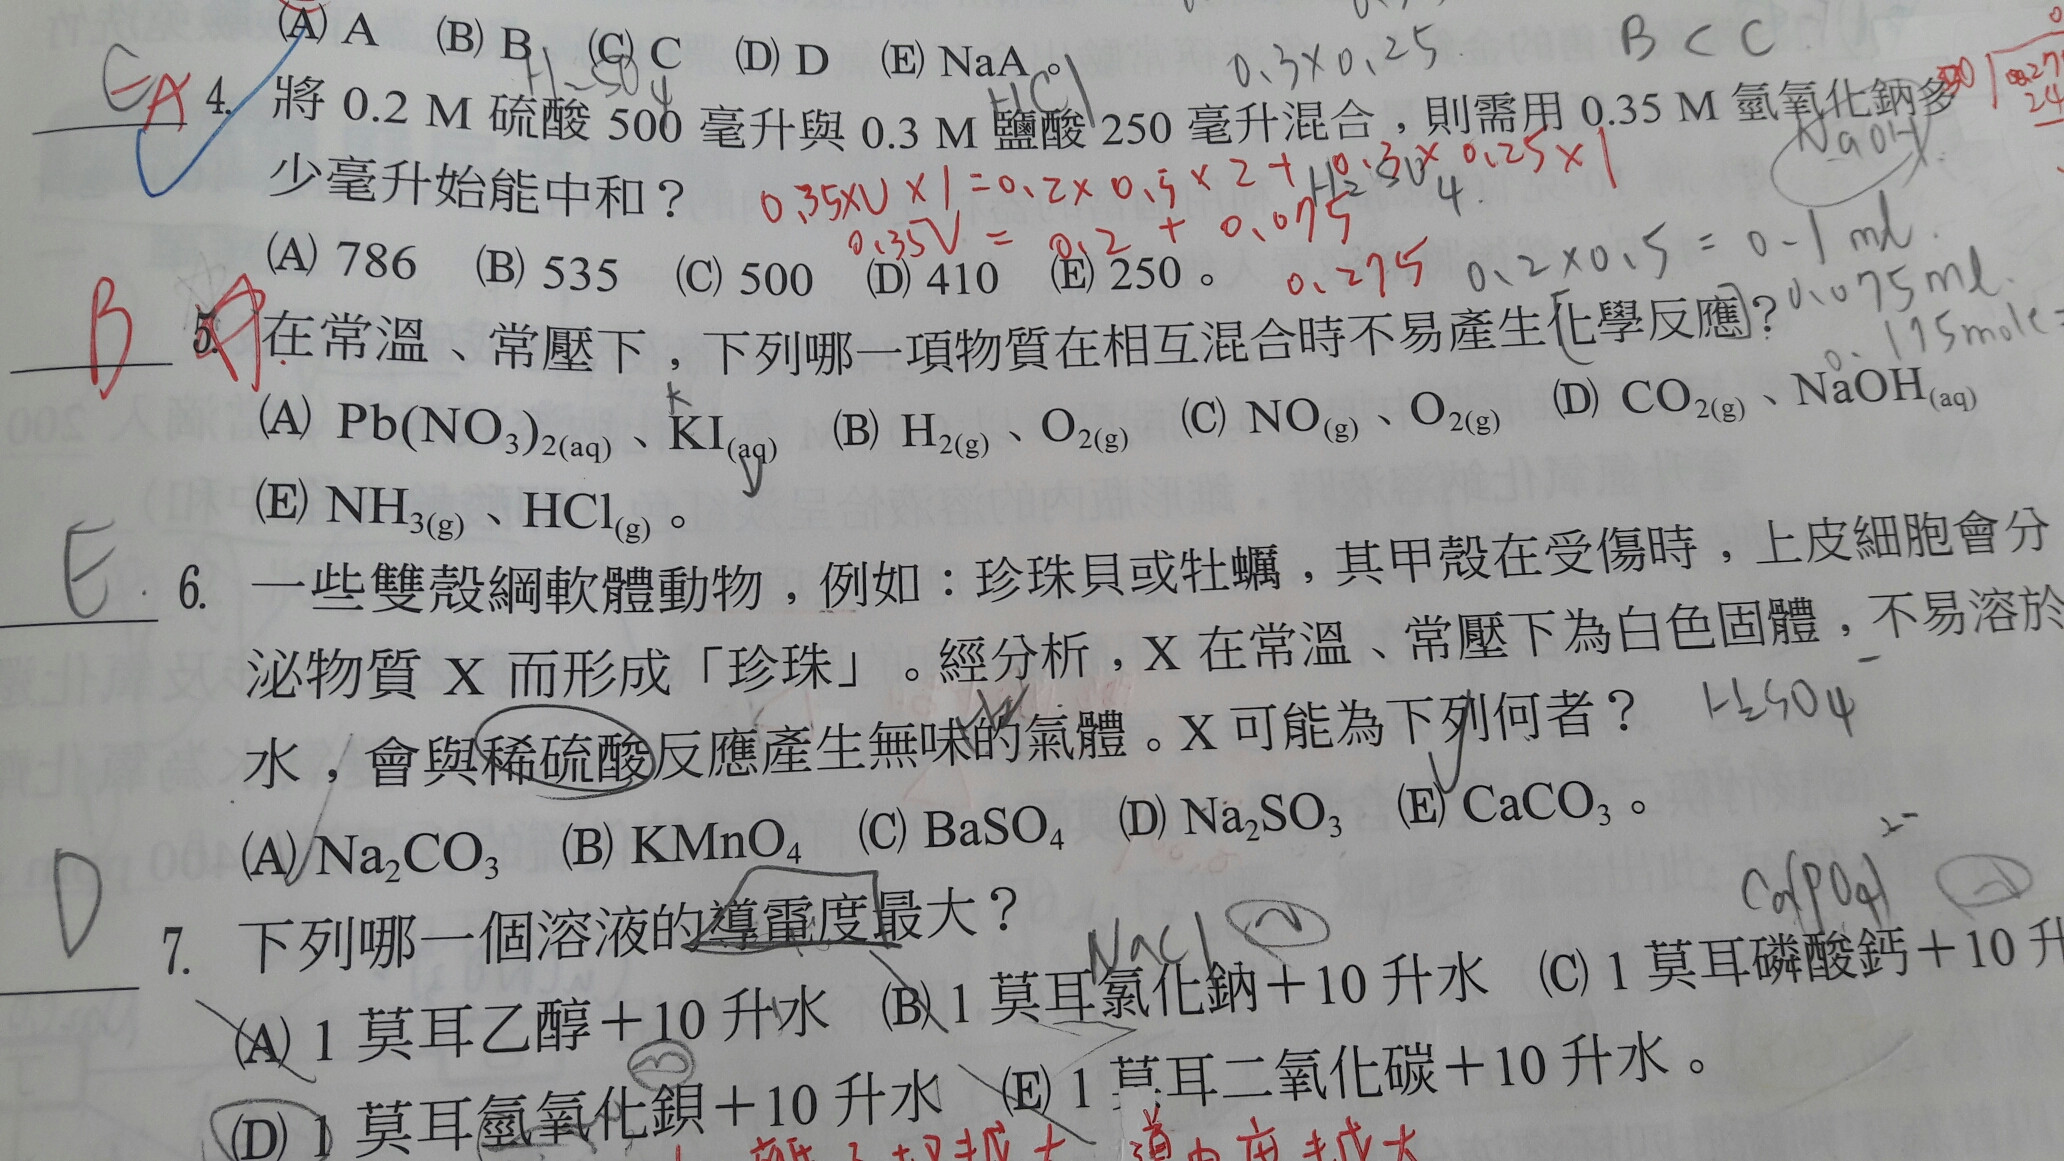 (A) A (B) B (C) C (D) D (E) NaA。
0.3×0.25
B < C
E A 4. 將 0.2 M 硫酸 500 毫升與 0.3 M 鹽酸 250 毫升混合，則需用 0.35 M 氫氧化鈉多
H2SO4
HCl
NaOH
少毫升始能中和？
0.35×V×1=0.2×0.5×2+0.3×0.25×1
H2SO4
0.35V = 0.2 + 0.075
0.275
0.2×0.5 = 0.1 ml.
0.075ml.
0.175mole=
(A) 786 (B) 535 (C) 500 (D) 410 (E) 250。
B 5. 在常溫、常壓下，下列哪一項物質在相互混合時不易產生化學反應？
(A) Pb(NO3)2(aq)、KI(aq) (B) H2(g)、O2(g) (C) NO(g)、O2(g) (D) CO2(g)、NaOH(aq)
(E) NH3(g)、HCl(g)。
E. 6. 一些雙殼綱軟體動物，例如：珍珠貝或牡蠣，其甲殼在受傷時，上皮細胞會分
泌物質 X 而形成「珍珠」。經分析，X 在常溫、常壓下為白色固體，不易溶於
水，會與稀硫酸反應產生無味的氣體。X 可能為下列何者？
H2SO4
(A) Na2CO3 (B) KMnO4 (C) BaSO4 (D) Na2SO3 (E) CaCO3。
D 7. 下列哪一個溶液的導電度最大？
NaCl
(A) 1 莫耳乙醇＋10 升水 (B) 1 莫耳氯化鈉＋10 升水 (C) 1 莫耳磷酸鈣＋10 升
(D) 1 莫耳氫氧化鋇＋10 升水 (E) 1 莫耳二氧化碳＋10 升水。